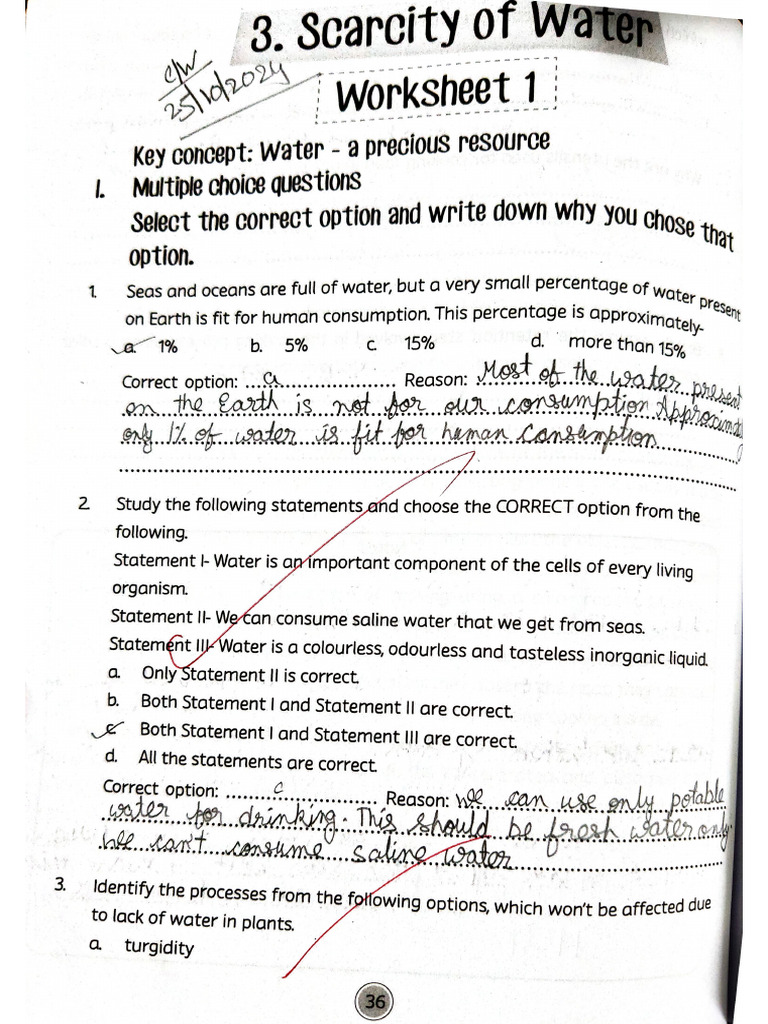 3. Scarcity of Water
C/W
25/10/2024
Worksheet 1
Key concept: Water - a precious resource
I. Multiple choice questions
Select the correct option and write down why you chose that
option.
1. Seas and oceans are full of water, but a very small percentage of water present
on Earth is fit for human consumption. This percentage is approximately-
a. 1% b. 5% c. 15% d. more than 15%
Correct option: a Reason: Most of the water present
on the Earth is not for our consumption Approximately
only 1% of water is fit for human consumption
2. Study the following statements and choose the CORRECT option from the
following.
Statement I- Water is an important component of the cells of every living
organism.
Statement II- We can consume saline water that we get from seas.
Statement III- Water is a colourless, odourless and tasteless inorganic liquid.
a. Only Statement II is correct.
b. Both Statement I and Statement II are correct.
c. Both Statement I and Statement III are correct.
d. All the statements are correct.
Correct option: c Reason: We can use only potable
water for drinking. This should be fresh water only.
We can't consume saline water
3. Identify the processes from the following options, which won't be affected due
to lack of water in plants.
a. turgidity
36